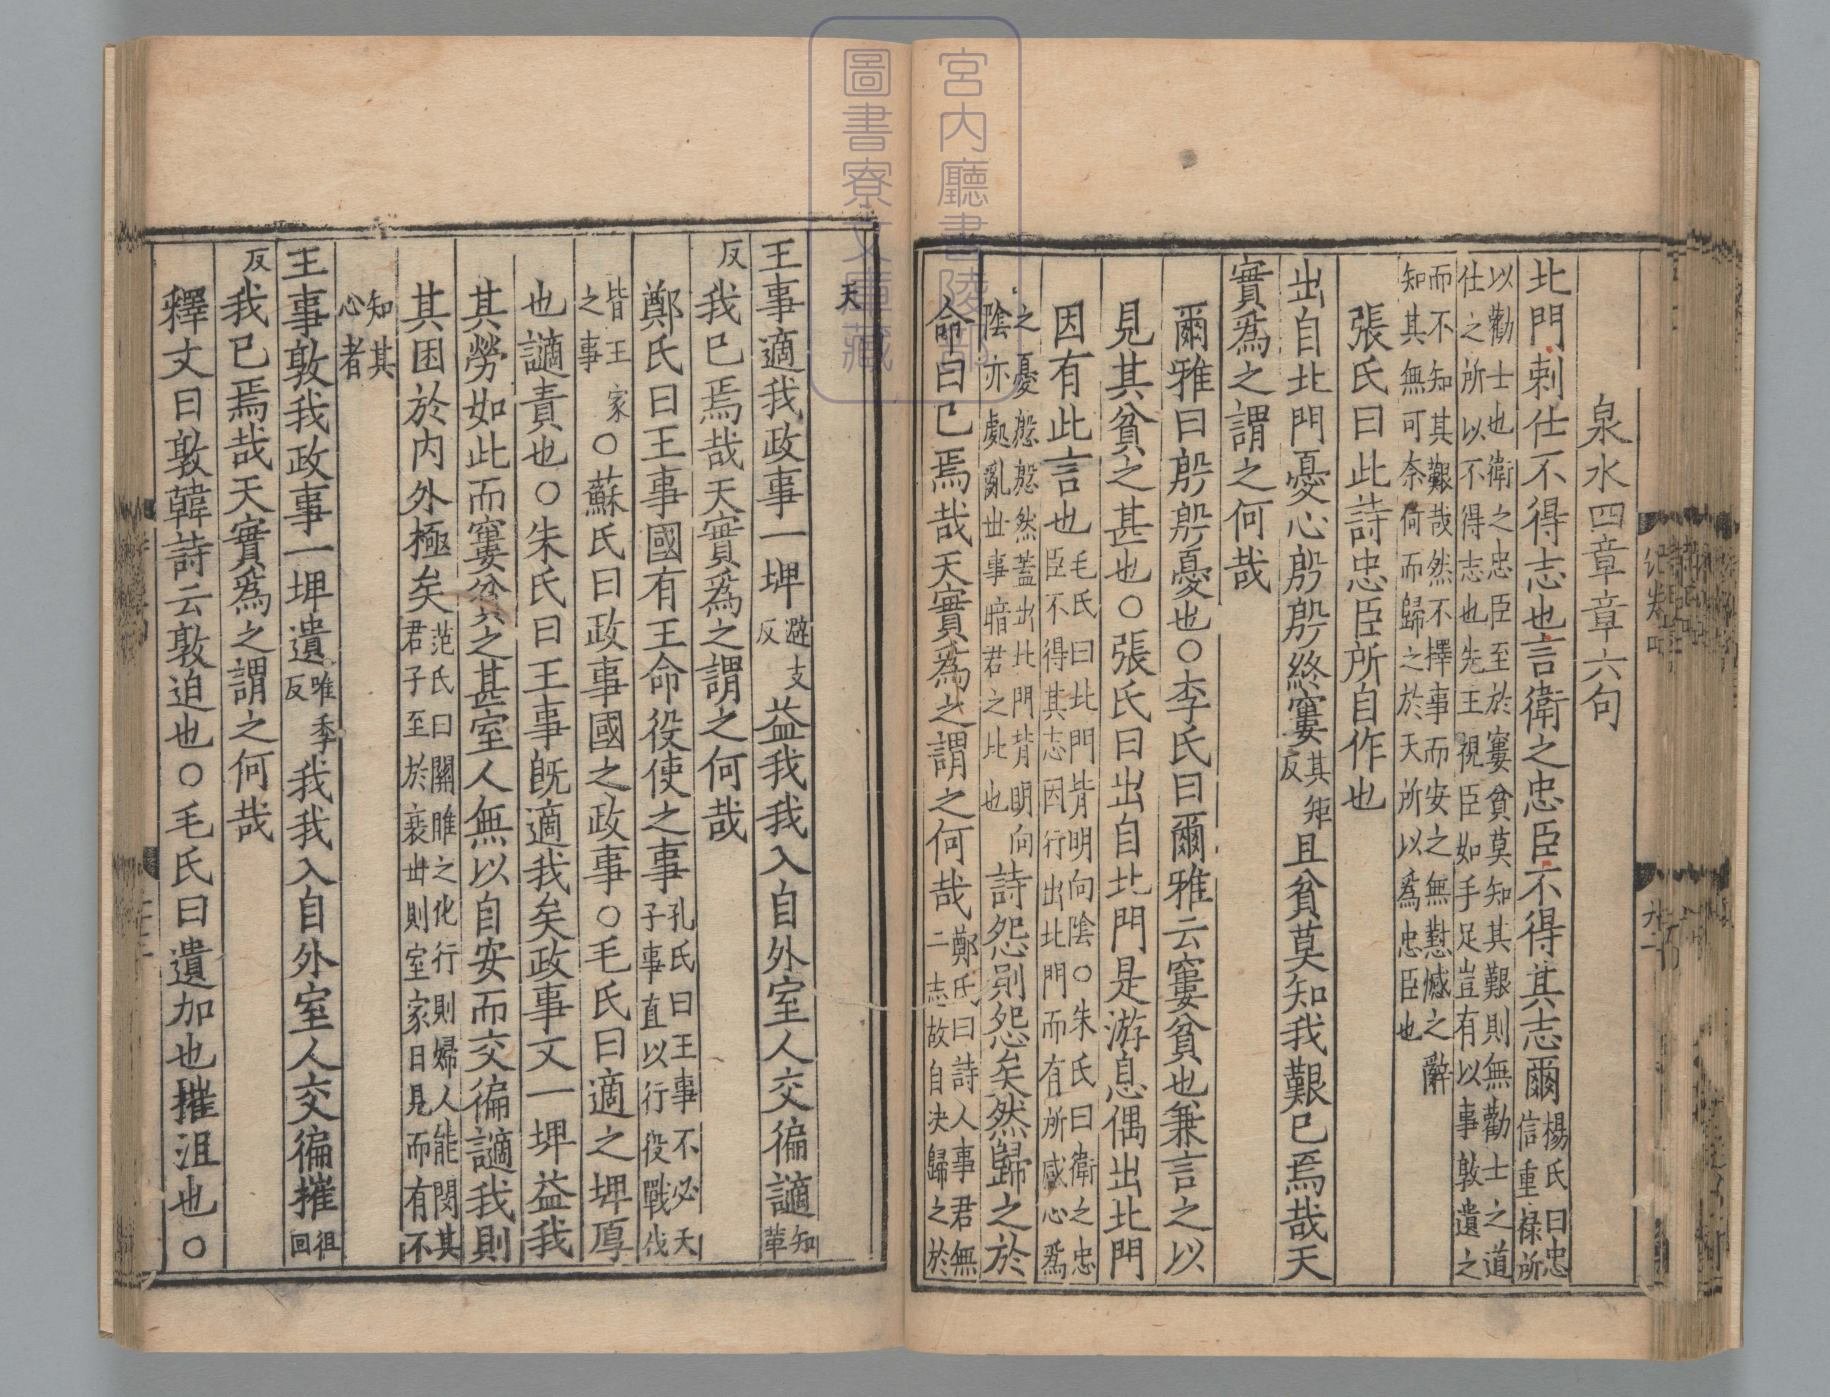 泉水四章章六句
北門刺仕不得志也言衛之忠臣不得其志爾楊氏曰忠信重祿所
以勸士也衛之忠臣至於窶貧莫知其艱則無勸士之道
仕之所以不得志也先王視臣如手足豈有以事敦遺之
而不知其艱哉然不擇事而安之無懟憾之辭
知其無可奈何而歸之於天所以爲忠臣也
張氏曰此詩忠臣所自作也
出自北門憂心殷殷終窶其矩反且貧莫知我艱已焉哉天
實爲之謂之何哉
爾雅曰殷殷憂也○李氏曰爾雅云窶貧也兼言之以
見其貧之甚也○張氏曰出自北門是游息偶出北門
因有此言也毛氏曰北門背明向陰○朱氏曰衛之忠臣不得其志因行出北門而有所感心爲
之憂慇慇然蓋出北門背明向陰亦處亂世事暗君之比也詩怨則怨矣然歸之於
命曰已焉哉天實爲之謂之何哉鄭氏曰詩人事君無二志故自决歸之於
天
王事適我政事一埤避支反益我我入自外室人交徧讁知革
反我已焉哉天實爲之謂之何哉
鄭氏曰王事國有王命役使之事孔氏曰王事不必天子事直以行役戰伐
皆王家之事○蘇氏曰政事國之政事○毛氏曰適之埤厚
也讁責也○朱氏曰王事旣適我矣政事又一埤益我
其勞如此而窶貧之甚室人無以自安而交徧讁我則
其困於内外極矣范氏曰關雎之化行則婦人能閔其君子至於衰世則室家日見而有不
知其心者
王事敦我政事一埤遺唯季反我我入自外室人交徧摧徂回
反我已焉哉天實爲之謂之何哉
釋文曰敦韓詩云敦迫也○毛氏曰遺加也摧沮也○
宮内廳書陵部
圖書寮文庫藏